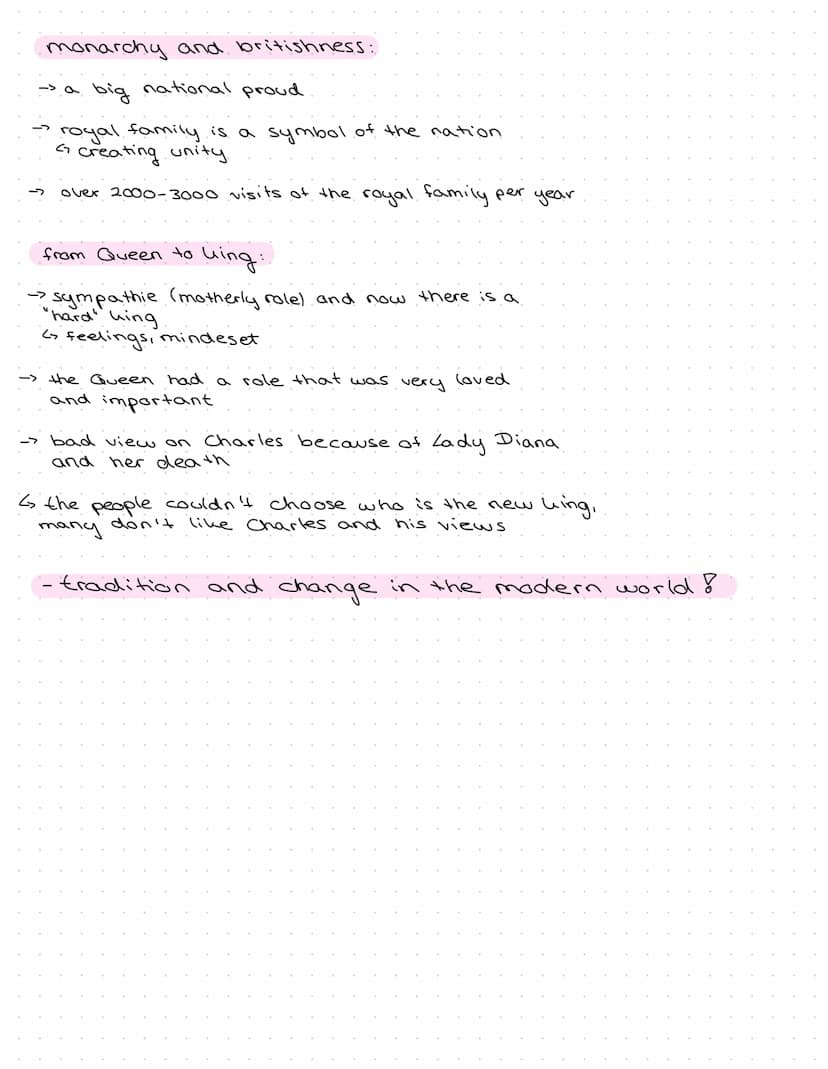 monarchy and britishness:
→ a big national proud
→ royal family is a symbol of the nation
↳ creating unity
→ over 2000-3000 visits of the royal family per year
from Queen to king:
→ sympathie (motherly role) and now there is a
"hard" king
↳ feelings, mindeset
→ the Queen had a role that was very loved
and important
→ bad view on Charles because of Lady Diana
and her death
↳ the people couldn't choose who is the new king,
many don't like Charles and his views
- tradition and change in the modern world!